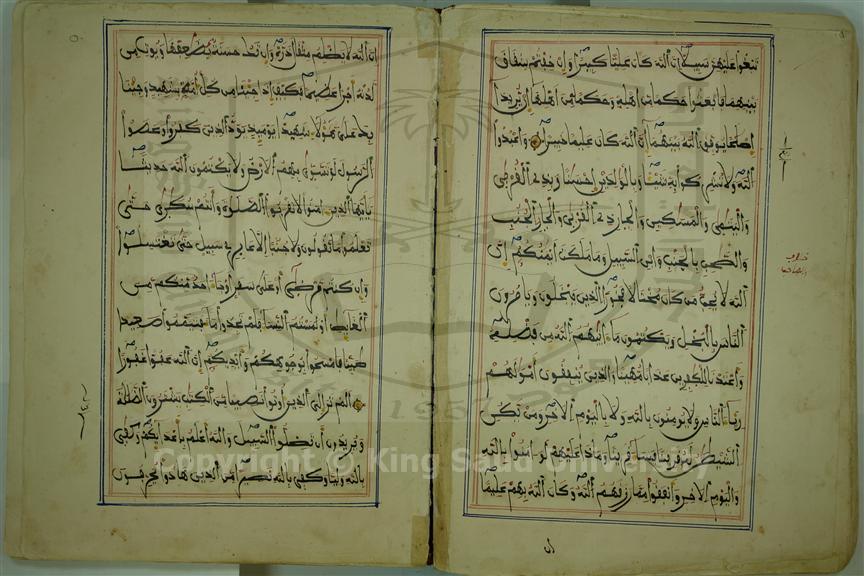 تبغوا عليهن سبيلا ان الله كان عليا كبيرا وان خفتم شقاق
بينهما فابعثوا حكما من اهله وحكما من اهلها ان يريدا
اصلحا يوفق الله بينهما ان الله كان عليما خبيرا واعبدوا
الله ولا تشركوا به شيئا وبالولدين احسنا وبذي القربى
واليتمى والمسكين والجار ذي القربى والجار الجنب
والصحب بالجنب وابن السبيل وما ملكت ايمنكم ان
الله لا يحب من كان مختالا فخورا الذين يبخلون ويامرون
الناس بالبخل ويكتمون ما اتيهم الله من فضله
واعتدنا للكفرين عذابا مهينا والذين ينفقون امولهم
رئاء الناس ولا يومنون بالله ولا باليوم الاخر ومن يكن
الشيطن له قرينا فساء قرينا وماذا عليهم لو امنوا بالله
واليوم الاخر وانفقوا مما رزقهم الله وكان الله بهم عليما
ان الله لا يظلم مثقال ذرة وان تك حسنة يضعفها ويوت من
لدنه اجرا عظيما فكيف اذا جئنا من كل امة بشهيد وجئنا
بك على هؤلاء شهيدا يوميذ يود الذين كفروا وعصوا
الرسول لو تسوى بهم الارض ولا يكتمون الله حديثا
يايها الذين امنوا لا تقربوا الصلوة وانتم سكرى حتى
تعلموا ما تقولون ولا جنبا الا عابري سبيل حتى تغتسلوا
وان كنتم مرضى او على سفر او جاء احد منكم من
الغايط او لمستم النساء فلم تجدوا ماء فتيمموا صعيدا
طيبا فامسحوا بوجوهكم وايديكم ان الله كان عفوا غفورا
الم تر الى الذين اوتوا نصيبا من الكتب يشترون الضللة
ويريدون ان تضلوا السبيل والله اعلم باعدايكم وكفى
بالله وليا وكفى بالله نصيرا من الذين هادوا يحرفون
Copyright © King Saud University
1957